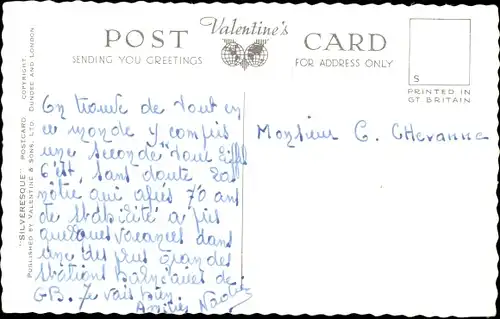 POST Valentine's CARD
SENDING YOU GREETINGS
FOR ADDRESS ONLY
S
PRINTED IN
GT. BRITAIN
"SILVERESQUE" POSTCARD. COPYRIGHT.
PUBLISHED BY VALENTINE & SONS, LTD. DUNDEE AND LONDON.
On trouve de tout en
ce monde y compris
une seconde "Tour Eiffel
C'est, sans doute la
nôtre qui après 70 ans
de stabilité a pris
quelques vacances dans
une des plus grandes
stations balnéaires de
GB. Je vais bien
Amitiés
Monsieur C. CHevanne